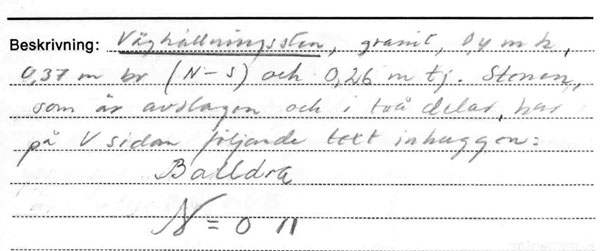 Beskrivning: Väghållningssten, granit, 0,4 m h,
0,37 m br (N-S) och 0,26 m tj. Stenen,
som är avslagen och i två delar, har
på V sidan följande text inhuggen:
Balldra
N = 0 11